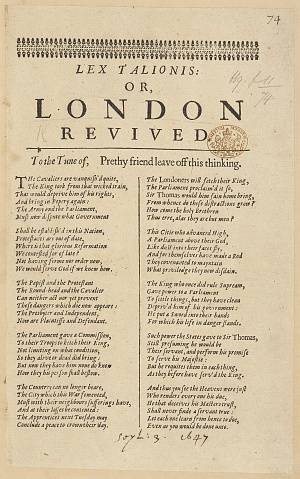 74
LEX TALIONIS:
OR,
LONDON
REVIVED
To the Tune of, Prethy friend leave off this thinking.
The Cavaliers are vanquish'd quite,
The King took from that wicked train,
That would deprive him of his right,
And bring in Popery again:
The Army and the Parliament,
Must now dispose what Government
Shall be establi'd in this Nation,
Protestants are out of date,
Where is that glorious Reformation
We contested for of late?
Not having Forme nor order now,
We would serve God if we knew how.
The Papist and the Protestant
The Round-head and the Cavalier
Can neither all nor yet prevent
Those dangers which do now appear:
The Presbyter and Independent,
Now are Plaintiffe and Defendant.
The Parliament gave a Commission,
To their Troups to fetch their King,
Not limiting in what condition,
So they alive or dead did bring:
But now they have him none do know
How they his person shall bestow.
The Countrey can no longer beare,
The City which this War fomented,
Must with their neighbours sufferings have,
And at their losses be contented:
The Apprentices next Tuesday may
Conclude a peace to crowne their day.
The Londoners will fetch their King,
The Parliament proclaim'd it so,
Sir Thomas would him faine bring,
From whence do these distractions grow?
How come the holy brethren
Thus erre, alas they are but men?
This Citie who advanced High,
A Parliament above their God,
Like dust into their faces fly,
And for themselves have made a Rod
They covenanted to maintain
What priviledge they now disdain.
The King who once did rule Supream,
Gave power to a Parliament
To settle things, but they have clean
Depriv'd him of his government:
He put a Sword into their hands
For which his life in danger stands.
Such power the States gave to Sir Thomas,
Still presuming he would be
Their servant, and performe his promise
To serve his Majestie:
But he requites them in each thing,
As they before have serv'd the King.
And thus you see the Heavens are just
Who renders every one his due,
He that deceives his Masters trust,
Shall never finde a servant true:
Let each one learn from hence to doe,
Even as you would be done unto.
1647